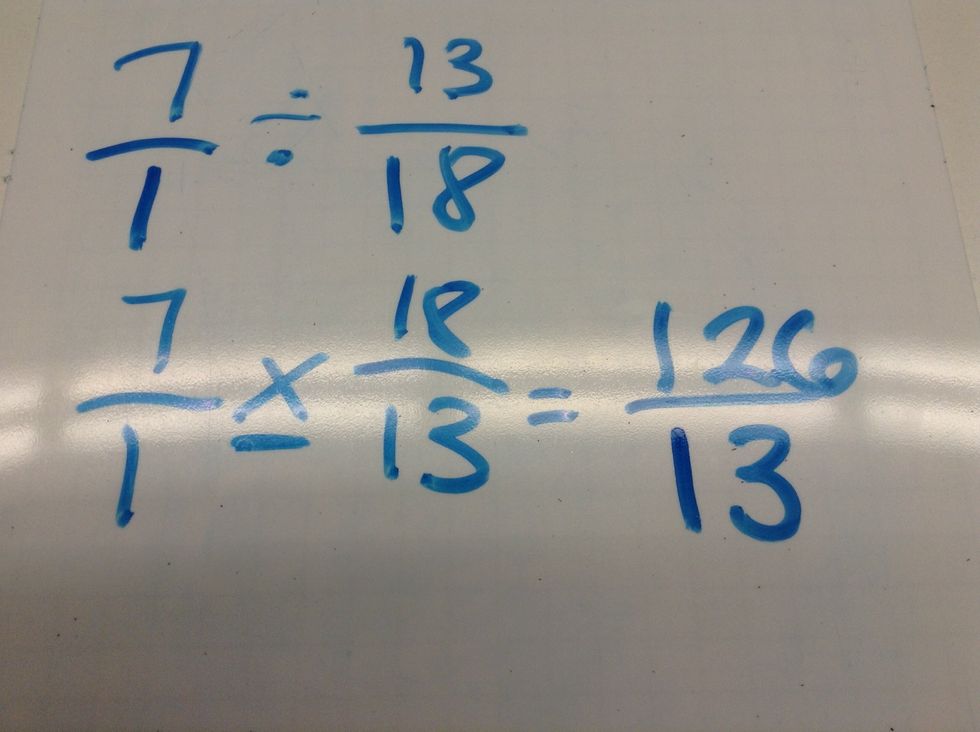 7/1 ÷ 13/18
7/1 × 18/13 = 126/13